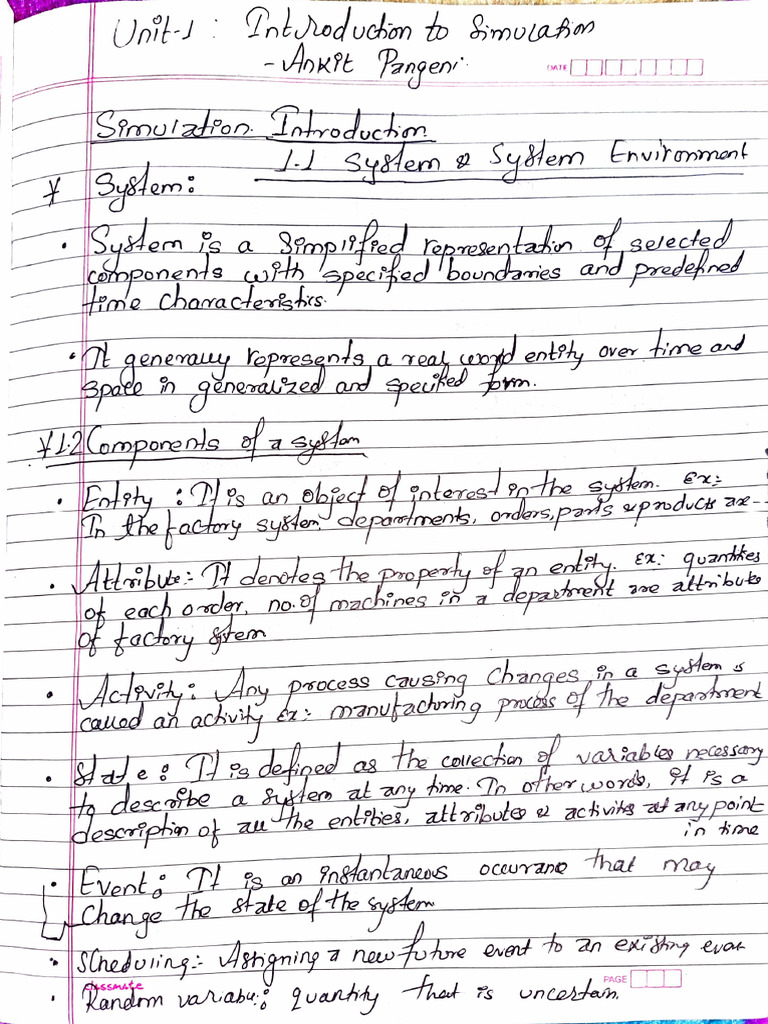 Unit-1 : Introduction to Simulation
- Ankit Pangeni
DATE
Simulation Introduction
1.1 System & System Environment
* System:
• System is a simplified representation of selected
components with specified boundaries and predefined
time characteristics.
• It generally represents a real word entity over time and
space in generalized and specified form.
* 1.2 Components of a system
• Entity : It is an object of interest in the system. Ex:
In the factory system departments, orders, parts & products are -
• Attribute:- It denotes the property of an entity. Ex: quantities
of each order, no. of machines in a department are attribute
of factory sstem
• Activity: Any process causing changes in a system is
called an activity Ex: manufactoring process of the department
• State: It is defined as the collection of variables necessary
to describe a system at any time. In other words, it is a
description of all the entities, attributes & activites at any point
in time
• Event: It is an instantaneous occurance that may
change the state of the system
• Scheduling:- Assigning a new future event to an existing
classmate
PAGE
• Random variable: quantity that is uncertain.